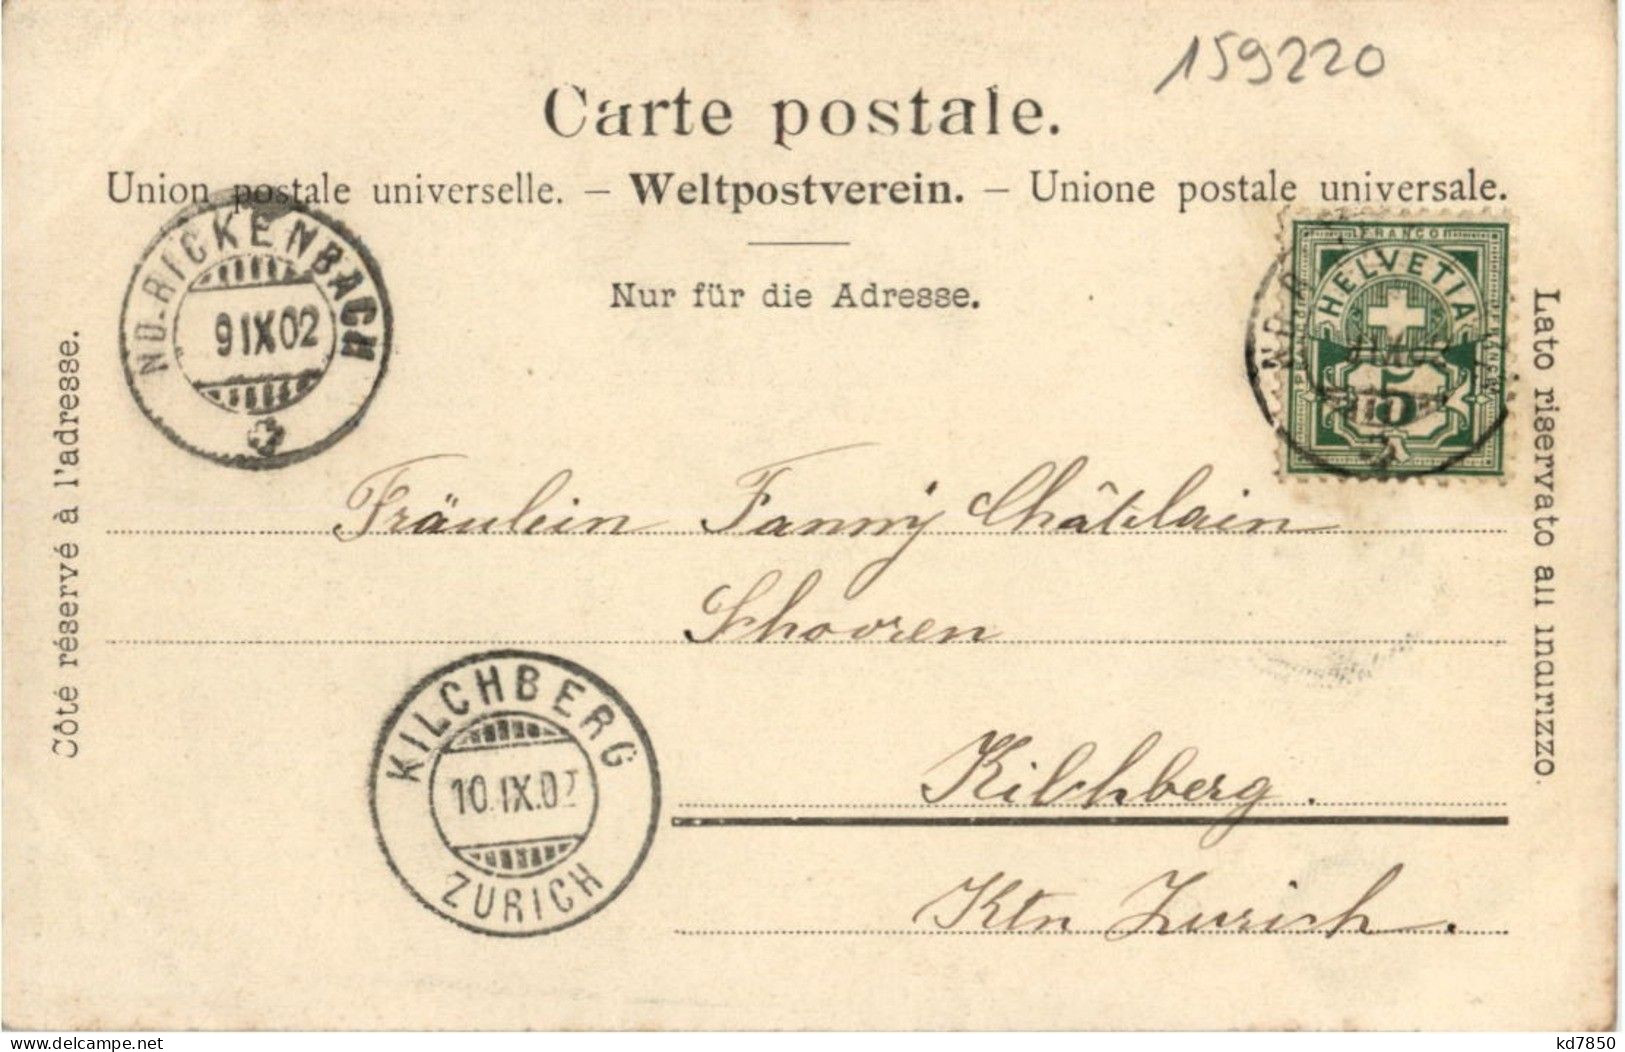 159220
Carte postale.
Union postale universelle. – Weltpostverein. – Unione postale universale.
Nur für die Adresse.
ND-RICKENBACH
9 IX 02
FRANCO
HELVETIA
5
Côté réservé à l'adresse.
Lato riservato all indirizzo.
Fräulein Fanny Châtelain
Schooren
Kilchberg.
Ktn Zürich.
KILCHBERG
10.IX.02
ZÜRICH
delcampe.net
kd7850